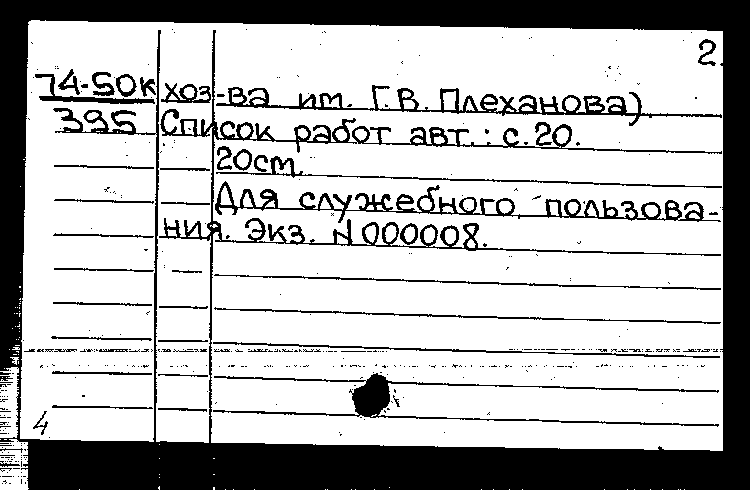 2.
74-50к хоз-ва им. Г.В. Плеханова)
395 Список работ авт.: с.20.
20см.
Для служебного пользова-
ния. Экз. N000008.
4